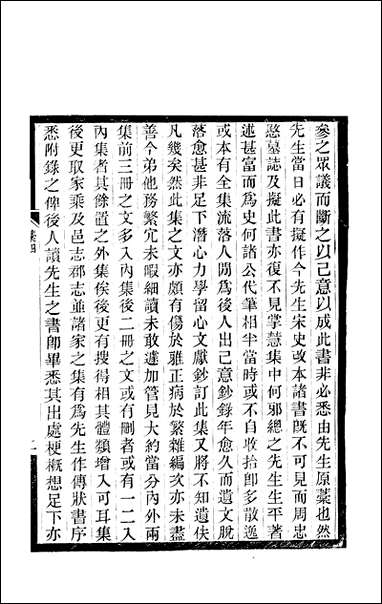 參之眾議而斷之以己意以成此書非必悉由先生原藁也然
先生當日必有擬作今先生宋史改本諸書既不可見而周忠
愍墓誌及擬此書亦復不見掌慧集中何邪總之先生生平著
述甚富而爲史何諸公代筆相半當時或不自收拾卽多散逸
或本有全集流落人閒爲後人出己意鈔錄年愈久而遺文脫
落愈甚非足下潛心力學留心文獻鈔訂此集又將不知遺佚
凡幾矣然此集之文亦頗有傷於雅正病於繁雜編次亦未盡
善今弟他務繁宂未暇細讀未敢遽加管見大約當分內外兩
集前三冊之文多入內集後二冊之文或有刪者或有一二入
內集者其餘置之外集俟後更有搜得相其體類增入可耳集
後更取家乘及邑志郡志並諸家之集有爲先生作傳狀書序
悉附錄之俾後人讀先生之書卽畢悉其出處梗概想足下亦